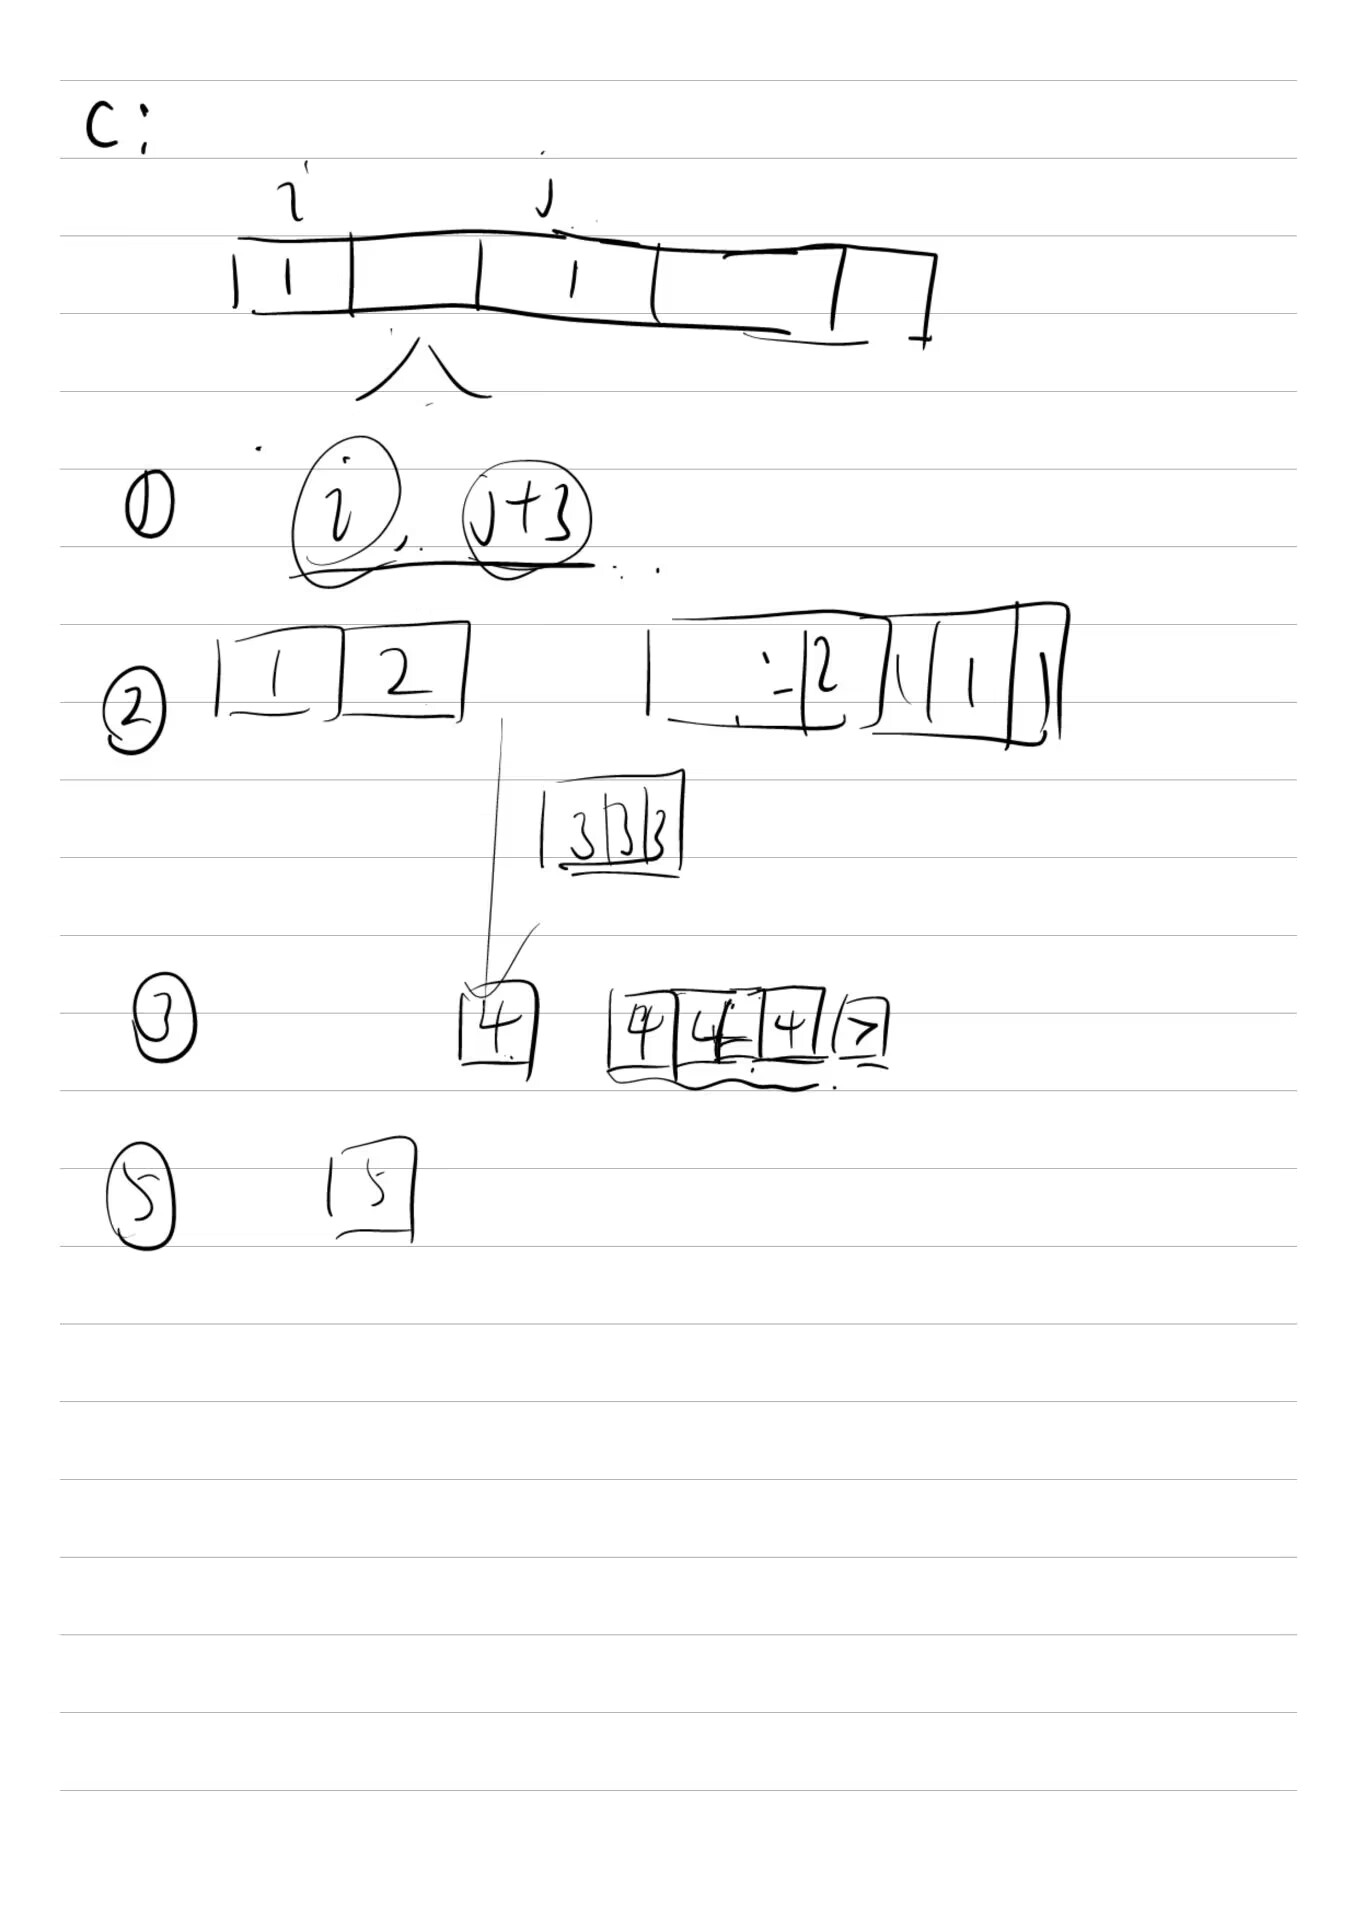 C:
i j
1 1
① i, j+3
② 1 2 2 1 1 1
3 3 3
③ 4 4 4 4 >
⑤ 5